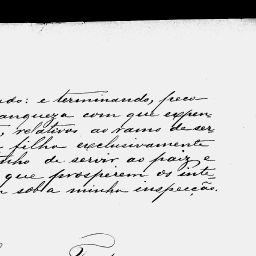 ado: e terminando, peço
anqueza com que expen-
, relativos ao ramo de ser
filho exclusivamente
nho de servir ao paiz e
que prosperem os inte-
a sob a minha inspecção.